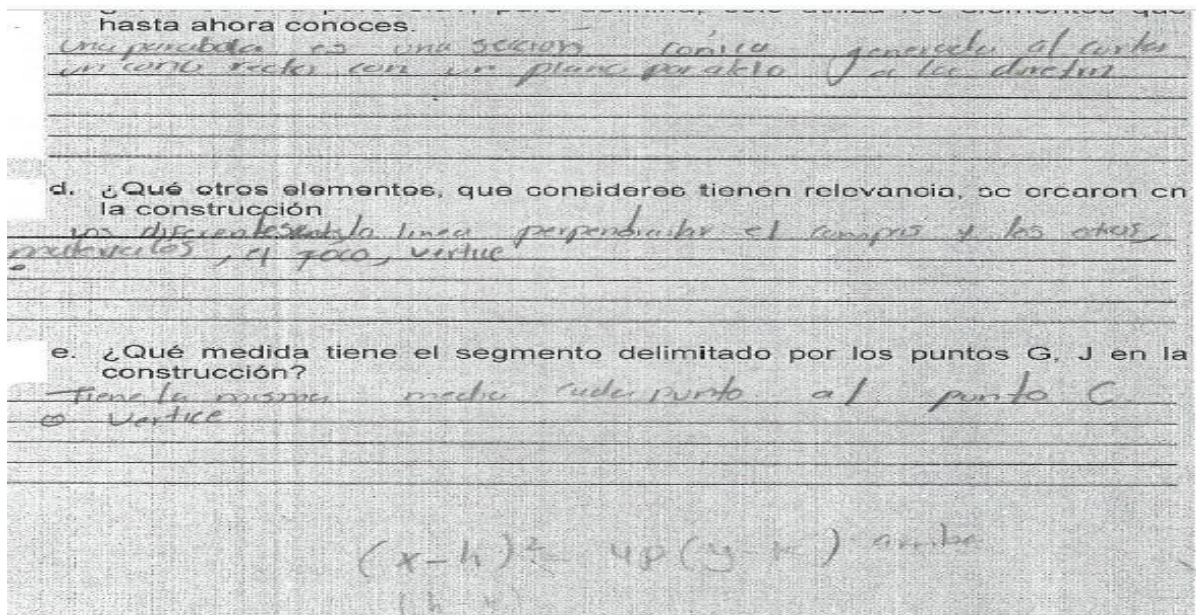 hasta ahora conoces.
una parabola es una seccion conica generada al cortar
un cono recto con un plano paralelo a la directriz
d. ¿Qué otros elementos, que consideres tienen relevancia, se crearon en
la construcción
los diferentes la linea perpendicular el compas y los otros
materiales, el foco, vertice
e. ¿Qué medida tiene el segmento delimitado por los puntos G, J en la
construcción?
Tiene la misma media cada punto al punto C
o vertice
(x-h)²= 4p(y-k) arriba